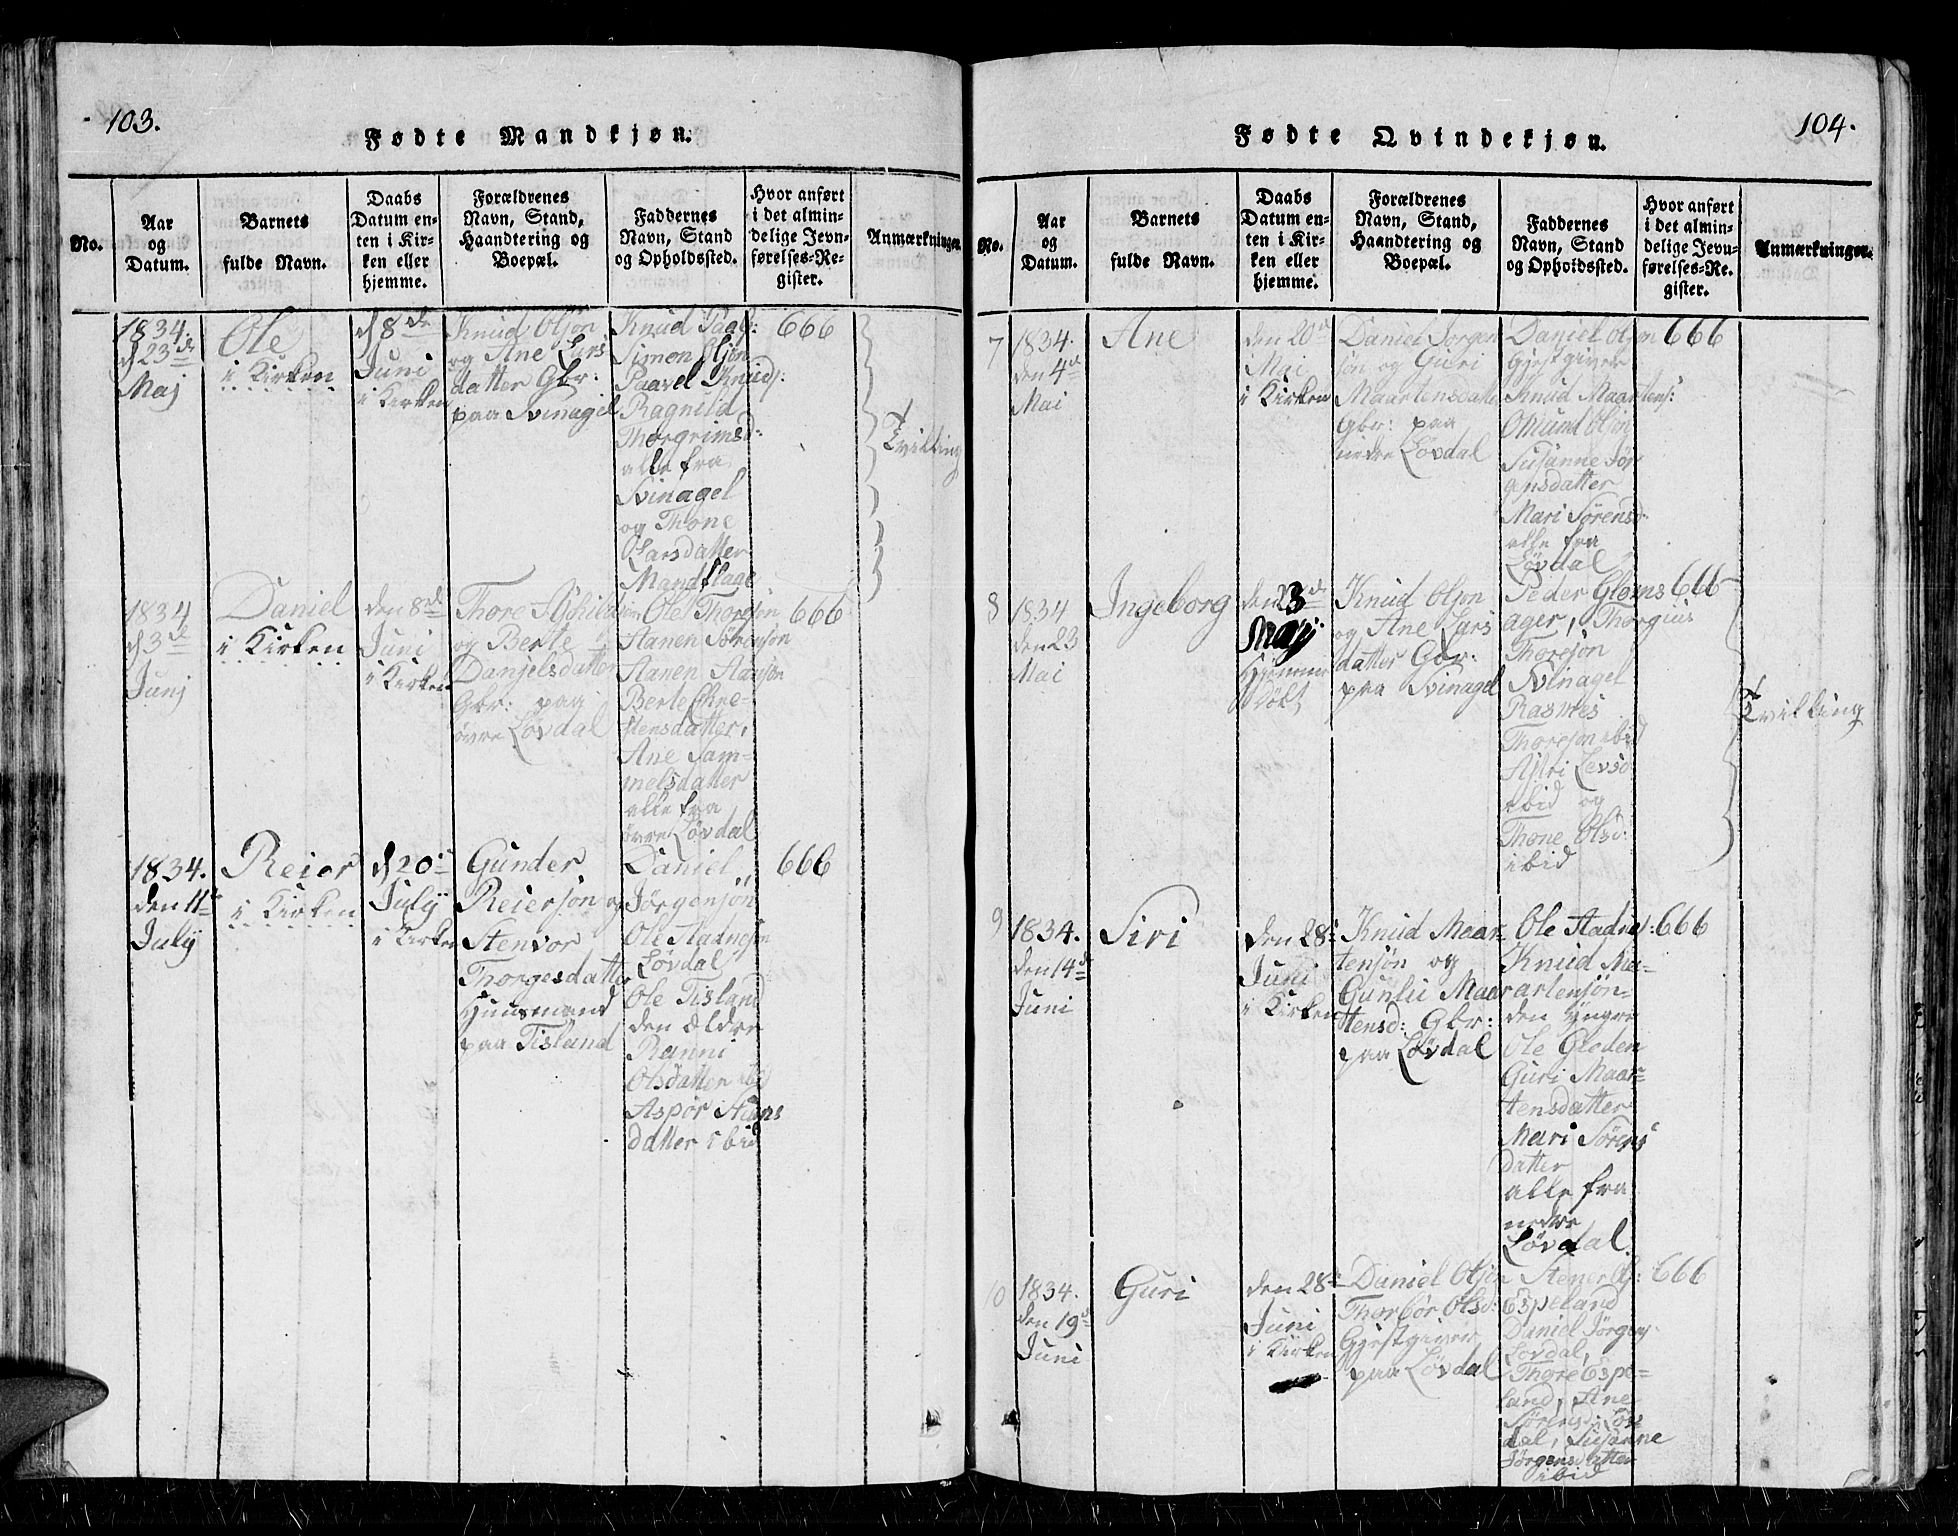 103.
Fødte Mandkjøn.
No.
Aar
og
Datum.
Barnets
fulde Navn.
Daabs
Datum en-
ten i Kir-
ken eller
hjemme.
Forældrenes
Navn, Stand,
Haandtering og
Boepæl.
Faddernes
Navn, Stand
og Opholdssted.
Hvor anført
i det almin-
delige Jevn-
førelses-Re-
gister.
Anmærkninger.
1834.
d 23de
Maj
Ole
i Kirken
d 8de
Juni
i Kirken
Knud Olsøn
og Ane Lars
datter Gbr:
paa Svinagel
Knud Paals:
Simon Olsøn
Paavel Knuds:
Ragnild
Thorgrimsd:
alle fra
Svinagel
og Thone
Olarsdatter
Mandflage
666
Tvilling
1834
d 3de
Junj
Daniel
i Kirken
den 8de
Juni
i Kirken
Thore
og Berte
Danjelsdatter
Gbr: paa
øvre Løvdal
Ole Thoresøn
Aanen Sørensøn
Aanen Aansøn
Berte Chre-
stensdatter,
Ane Sam-
melsdatter
alle fra
øvre Løvdal
666
1834.
den 11te
July
Reier
i Kirken
d 20de
July
i Kirken
Gunder
Reiersøn og
Stenvor
Thorgesdatter
Huusmand
paa Tisland
Daniel
Jørgensøn
Ole Aadnesøn
Løvdal
Ole Tisland
den Ældre
Ranni
Olsdatter ibid
Aspør Hans
datter ibid
666
104.
Fødte Qvindekjøn.
No.
Aar
og
Datum.
Barnets
fulde Navn.
Daabs
Datum en-
ten i Kir-
ken eller
hjemme.
Forældrenes
Navn, Stand,
Haandtering og
Boepæl.
Faddernes
Navn, Stand
og Opholdssted.
Hvor anført
i det almin-
delige Jevn-
førelses-Re-
gister.
Anmærkninger.
7
1834.
den 4de
Mai
Ane
den 20de
Mai
i Kirken
Daniel Jørgen
søn og Guri
Maartensdatter
Gbr: paa
nedre Løvdal
Daniel Olsøn
Gjestgiver
Knud Maartens:
Omund Olsøn
Susanne Jør
gensdatter
Mari Sørensd:
alle fra
Løvdal
666
8
1834
den 23
Mai
Ingeborg
den 23de
Maj
Hjemme
Døbt
Knud Olsøn
og Ane Lars
datter Gbr:
paa Svinagel
Peder Gloms
ager, Thorgius
Thoresøn
Svinagel
Rasmes
Thoresøn ibid
Astri Levsd
ibid og
Thone Olsd:
ibid
666
Tvilling
9
1834.
den 14de
Juni
Siri
den 28de
Juni
i Kirken
Knud Maar-
tensøn og
Gunlu Maar
tensd: Gbr:
paa Løvdal
Ole Aadnes:
Knud Ma-
artensøn-
den Yngre
Ole Gleden
Guri Maar-
tensdatter
Mari Sørens
datter
alle fra
nedre
Løvdal.
666
10
1834.
den 19de
Juni
Guri
den 28de
Juni
i Kirken
Daniel Olsøn
Thorbør Olsd:
Gjestgiver
paa Løvdal
Stener Ols:
Espeland
Daniel Jørgens
Løvdal,
Thore Espe-
land, Ane
Sørensd: Løv
dal, Susanne
Jørgensdatter
ibid
666